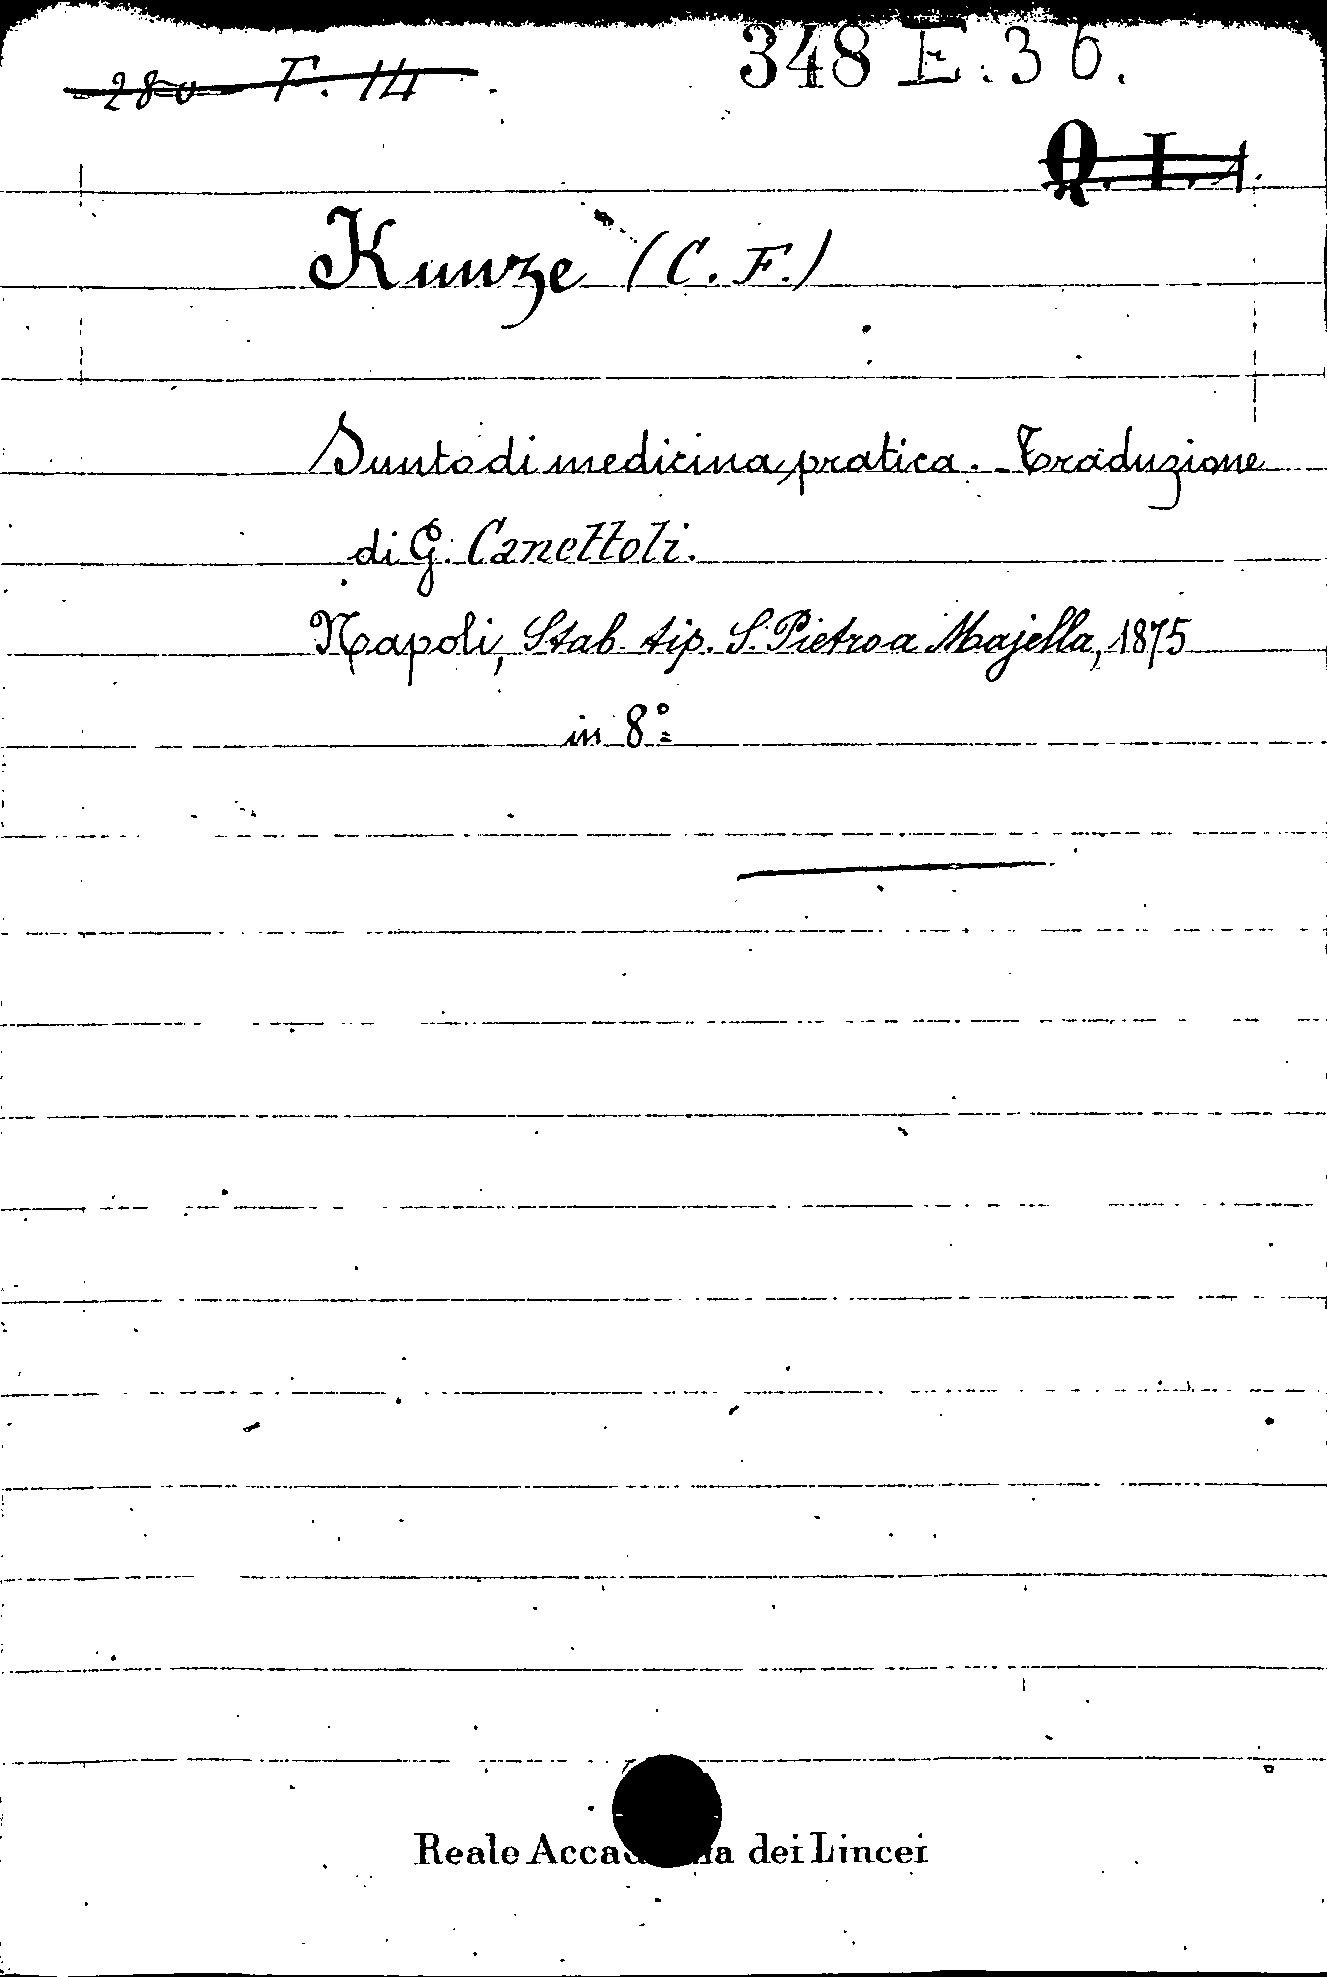 280 F. 14
348 E. 36.
Q. I. 4.
Kunze (C. F.)
Sunto di medicina pratica. - Traduzione
di G. Canettoli.
Napoli, Stab. tip. S. Pietro a Majella, 1875
in 8°
Reale Accad dei Lincei